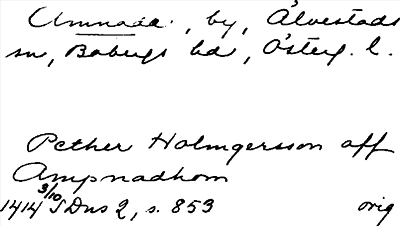 Ämnada, by, Alvestads
sn, Bobergs hd, Österg. l.
Pether Holmgersson aff
Ampnadhom
1414 3/10 SDns 2, s. 853 orig